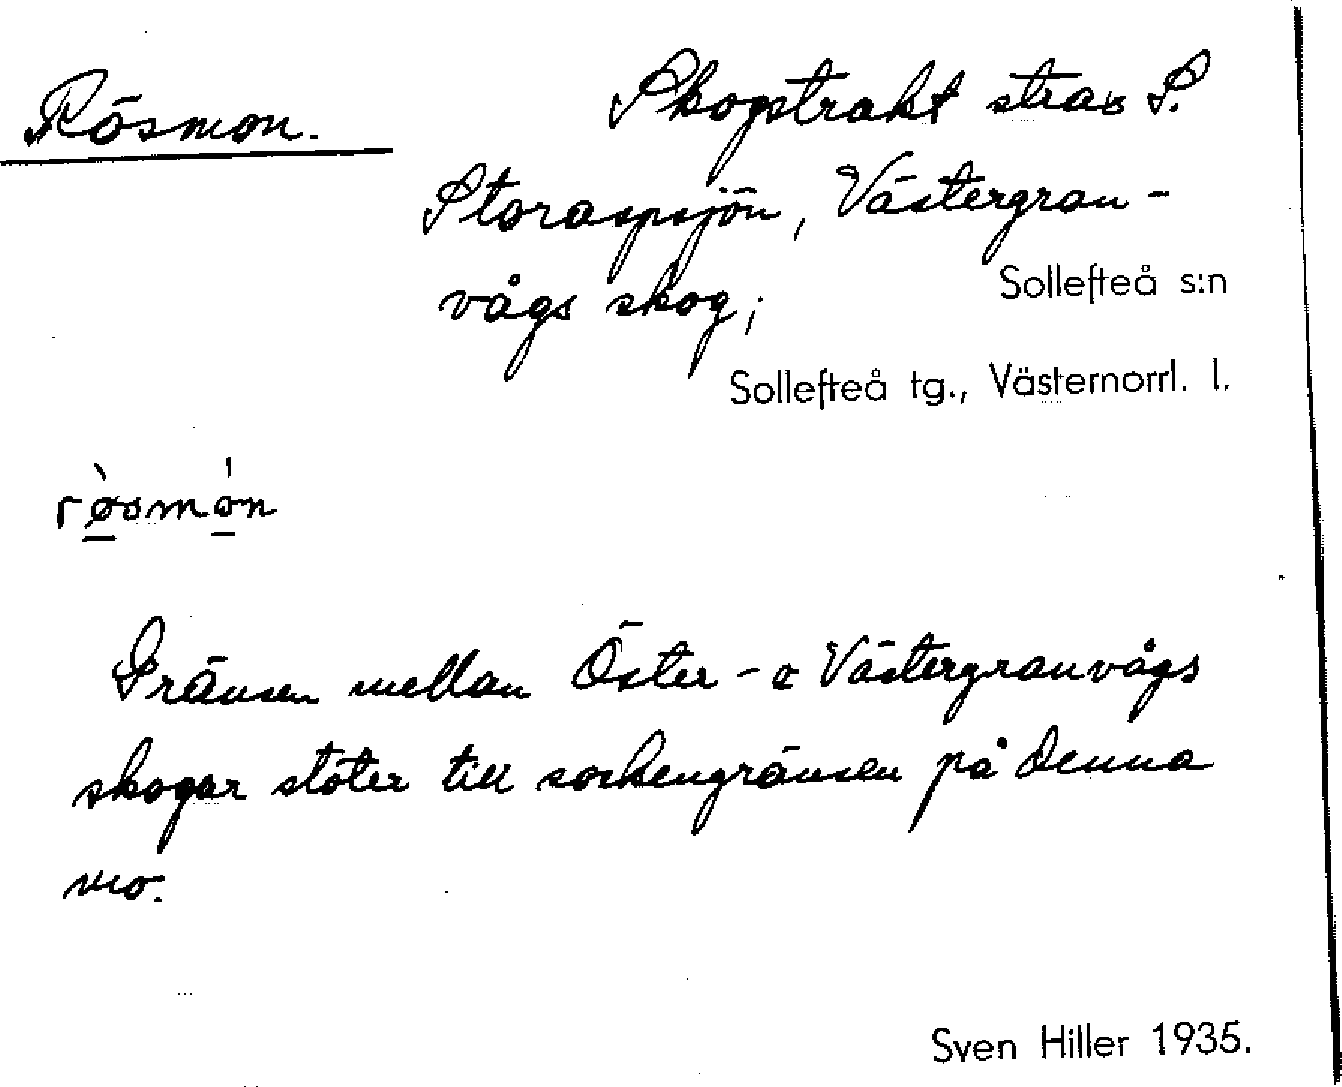 Rösmon.
Skogstrakt strax S.
Storaspsjön, Västergran-
vågs skog;
Sollefteå s:n
Sollefteå tg., Västernorrl. l.
rø̀smón
Gränsen mellan Öster- o Västergranvågs
skogar stöter till sockengränsen på denna
mo.
Sven Hiller 1935.